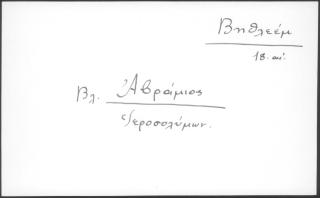 Βηθλεέμ
18. αἰ.
Βλ. Ἀβράμιος
Ἱεροσολύμων.